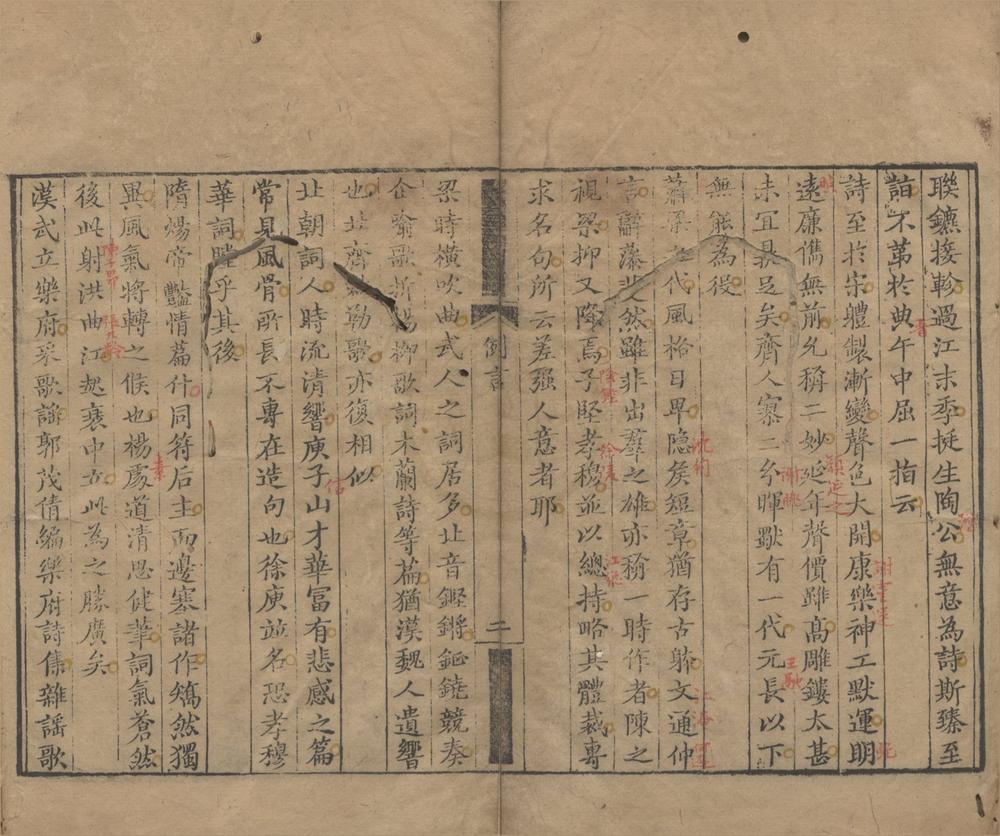 聯鑣接軫過江末季挺生陶公無意為詩斯臻至
詣不第於典午中屈一指云
詩至於宋體製漸變聲色大開康樂神工默運明
遠廉儁無前允稱二妙延年聲價雖高雕鏤太甚
未冝鼎足矣齊人寥二兮暉獸有一代元長以下
無能為役
蕭梁之代風格日卑隐矣短章猶存古躰文通仲
言辭藻斐然雖非出羣之雄亦稱一時作者陳之
視梁抑又降焉子堅孝穆並以總持略其體裁專
求名句所云差强人意者耶
例言
二
梁時橫吹曲武人之詞居多北音鏗鏘鉦鐃競奏
企喻歌折楊柳歌詞木蘭詩等篇猶漢魏人遺響
也北齊勑勒歌亦復相似
北朝詞人時流清響庾子山才華冨有悲感之篇
常見風骨所長不專在造句也徐庾並名恐孝穆
華詞瞠乎其後
隋煬帝豔情篇什同符后主而邊塞諸作矯然獨
異風氣將轉之候也楊處道清思健筆詞氣蒼然
後此射洪曲江起衰中古此為之勝廣矣
漢武立樂府采歌謡郭茂倩編樂府詩集雜謡歌